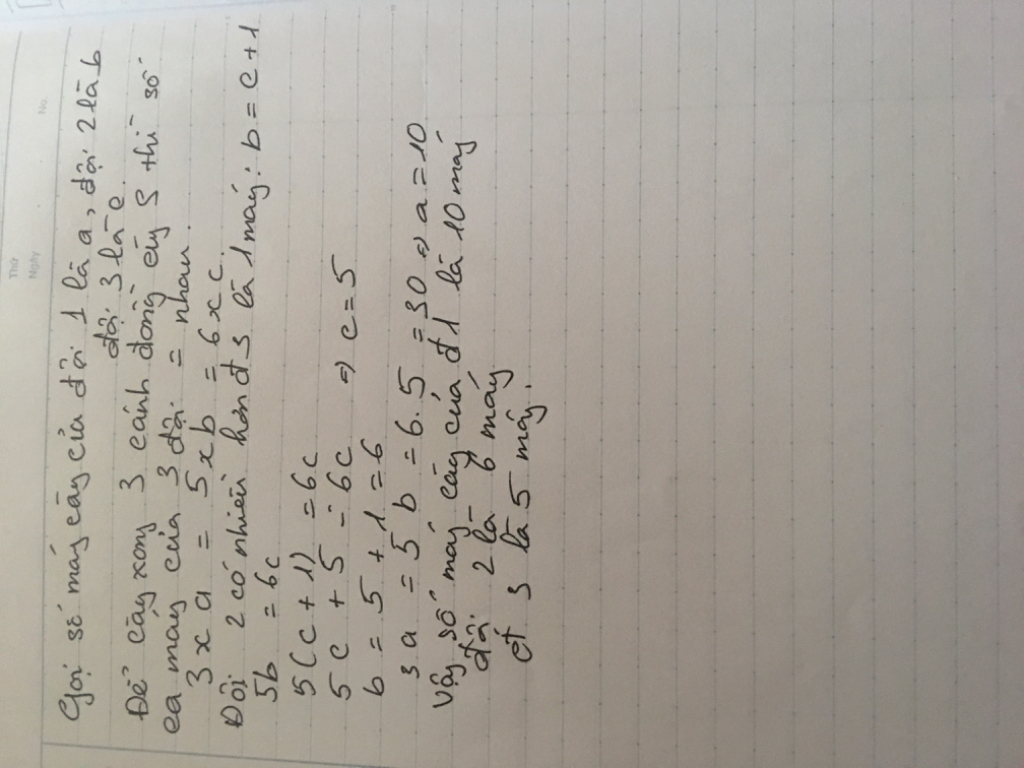 Thứ
Ngày
No.
Gọi số máy cày của đội 1 là a, đội 2 là b
đội 3 là c
Để cày xong 3 cánh đồng cùng S thì số
ca máy của 3 đội = nhau.
3 x a = 5 x b = 6 x c.
Đội 2 có nhiều hơn đ 3 là 1 máy: b = c + 1
5b = 6c
5(c + 1) = 6c
5c + 5 = 6c ⇒ c = 5
b = 5 + 1 = 6
3a = 5b = 6.5 = 30 ⇒ a = 10
Vậy số máy cày của đ 1 là 10 máy
đội 2 là 6 máy
đ 3 là 5 máy.